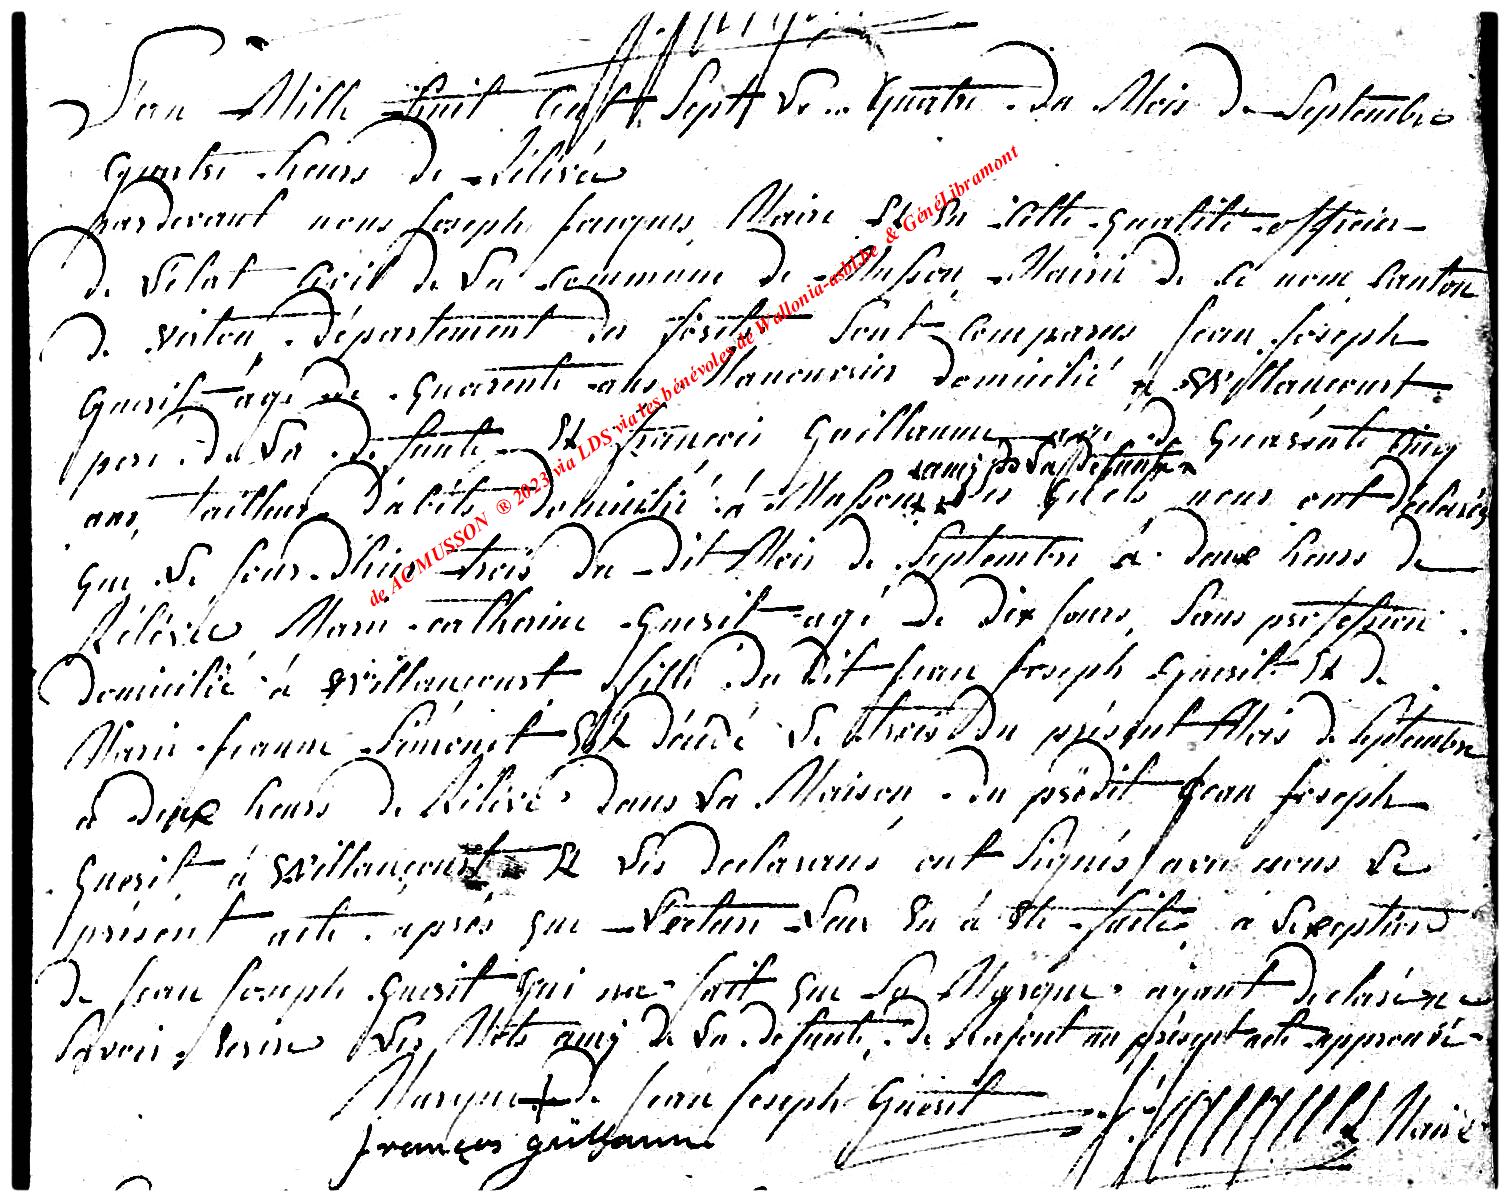 L'an Mille huit Cent Sept Le Quatre du Mois de Septembre
Quatre heurs de Rélévée
pardevant nous Joseph Mair Et En Cette qualité officier
de L'état Civil de La commune de Musson, Mairie de Ce nom Canton
de virton, département des forêts Sont Comparus Jean Joseph
Guerit âgé de quarente ans Manouvrier domicilié a Willancourt
pere de La defunte Et françois Guillaume agé de Quarente Cinq
ans, tailleur d'abits domicilié á Musson Les quels nous ont déclarés
amy de La defunte
que Le jour dhier trois du dit Mois de Septembre á deux heurs de
Rélévée Marie catherine Guerit agé de dix jours, Sans profession
domicilié á Willancourt fille du dit Jean Joseph Guerit Et de
Marie Jeanne Simonet Est décédé Le trois du présent Mois de Septembre
á deux heurs de Rélévé dans La Maison du prédit Jean Joseph
Guerit á Willancourt Et Les declarans ont Signés avec nous Le
présent acte aprés que Lecture Leur En á Eté faite, a Lexeption
de Jean Joseph Guerit qui ne fait que Sa Marque ayant declaré ne
Savoir Ecrire Les Mots amy de La defunte de Rajout au présent acte approuvé
Marque de Jean Joseph Guerit
Maire
françois güillaume
de AC MUSSON ® 2023 via LDS via les bénévoles de Wallonia-asbl.be & GénéLibramont